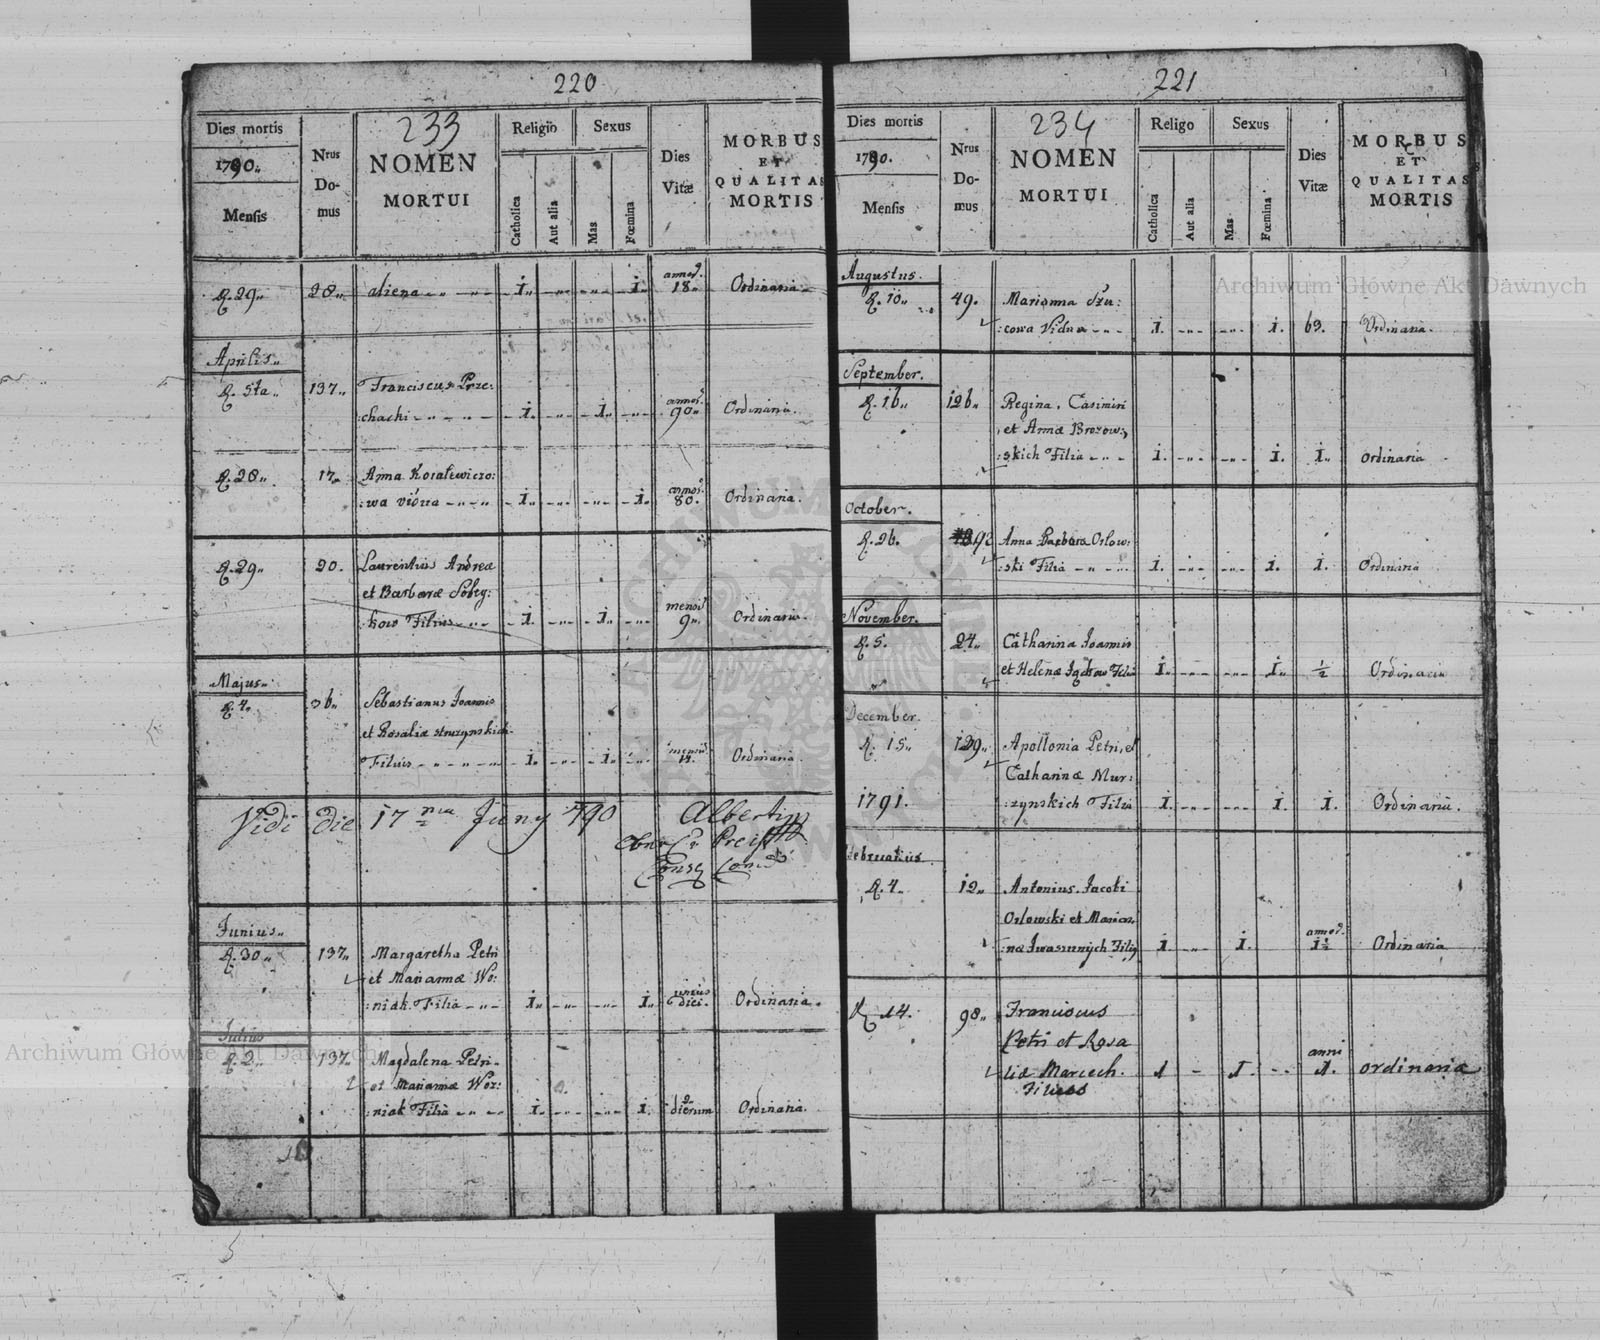 220
Dies mortis
1790.
Mensis
Nrus
Do-
mus
233
NOMEN
MORTUI
Religio
Catholica
Aut alia
Sexus
Mas
Fœmina
Dies
Vitæ
MORBUS
ET
QUALITAS
MORTIS
29 28 aliena 1. 1. annor. 18 Ordinaria
Aprilis
5ta 137 Franciscus Prze:
:chacki 1. 1. annor. 90 Ordinaria.
28 17 Anna Kosalewiczo:
:wa vidua 1. 1. annor. 80. Ordinaria.
29 20. Laurentius Andreæ
et Barbaræ
kow Filius 1. 1. mensi. 9 Ordinaria.
Majus
4 Sebastianus Joannis
et Rosaliæ
Filius 1. 1. Ordinaria.
Vidi die 17 Juny 790
Junius
30 137 Margaretha Petri
et Mariannæ Wo:
:niak Filia 1. 1. unius diei. Ordinaria.
Julius
2 137 Magdalena Petri
et Mariannæ Woz:
:niak Filia 1. 1. 2 dierum Ordinaria.
221
Dies mortis
1790.
Mensis
Nrus
Do-
mus
234
NOMEN
MORTUI
Religo
Catholica
Aut alia
Sexus
Mas
Fœmina
Dies
Vitæ
MORBUS
ET
QUALITAS
MORTIS
Augustus.
10 49. Marianna Szu:
:cowa Vidua 1. 1. 63. Ordinaria.
September.
16 126 Regina, Casimiri
et Annæ Brozow:
:skich Filia 1. 1. 1. Ordinaria
October.
26. 92 Anna Barbara Orlow:
:ski Filia 1. 1. 1. Ordinaria
November.
5. 24 Catharina Joannis
et Helenæ Filia 1. 1. 1/2 Ordinaria
December.
15 129 Apollonia Petri, et
Catharinæ Mur:
1791. :zynskich Filia 1. 1. 1. Ordinaria.
Februarius
4 12 Antonius Jacobi
Orlowski et Marian
:næ Filius 1 1. annor. 1½ Ordinaria
14. 98 Franciscus
Petri et Rosa
liæ Marcech. 1 1. anni 1. ordinaria
Filius
Archiwum Główne Akt Dawnych
Archiwum Główne Akt Dawnych